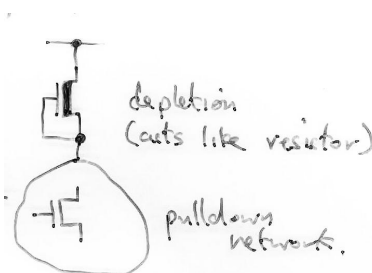 depletion
(acts like resistor)
pulldown
network.